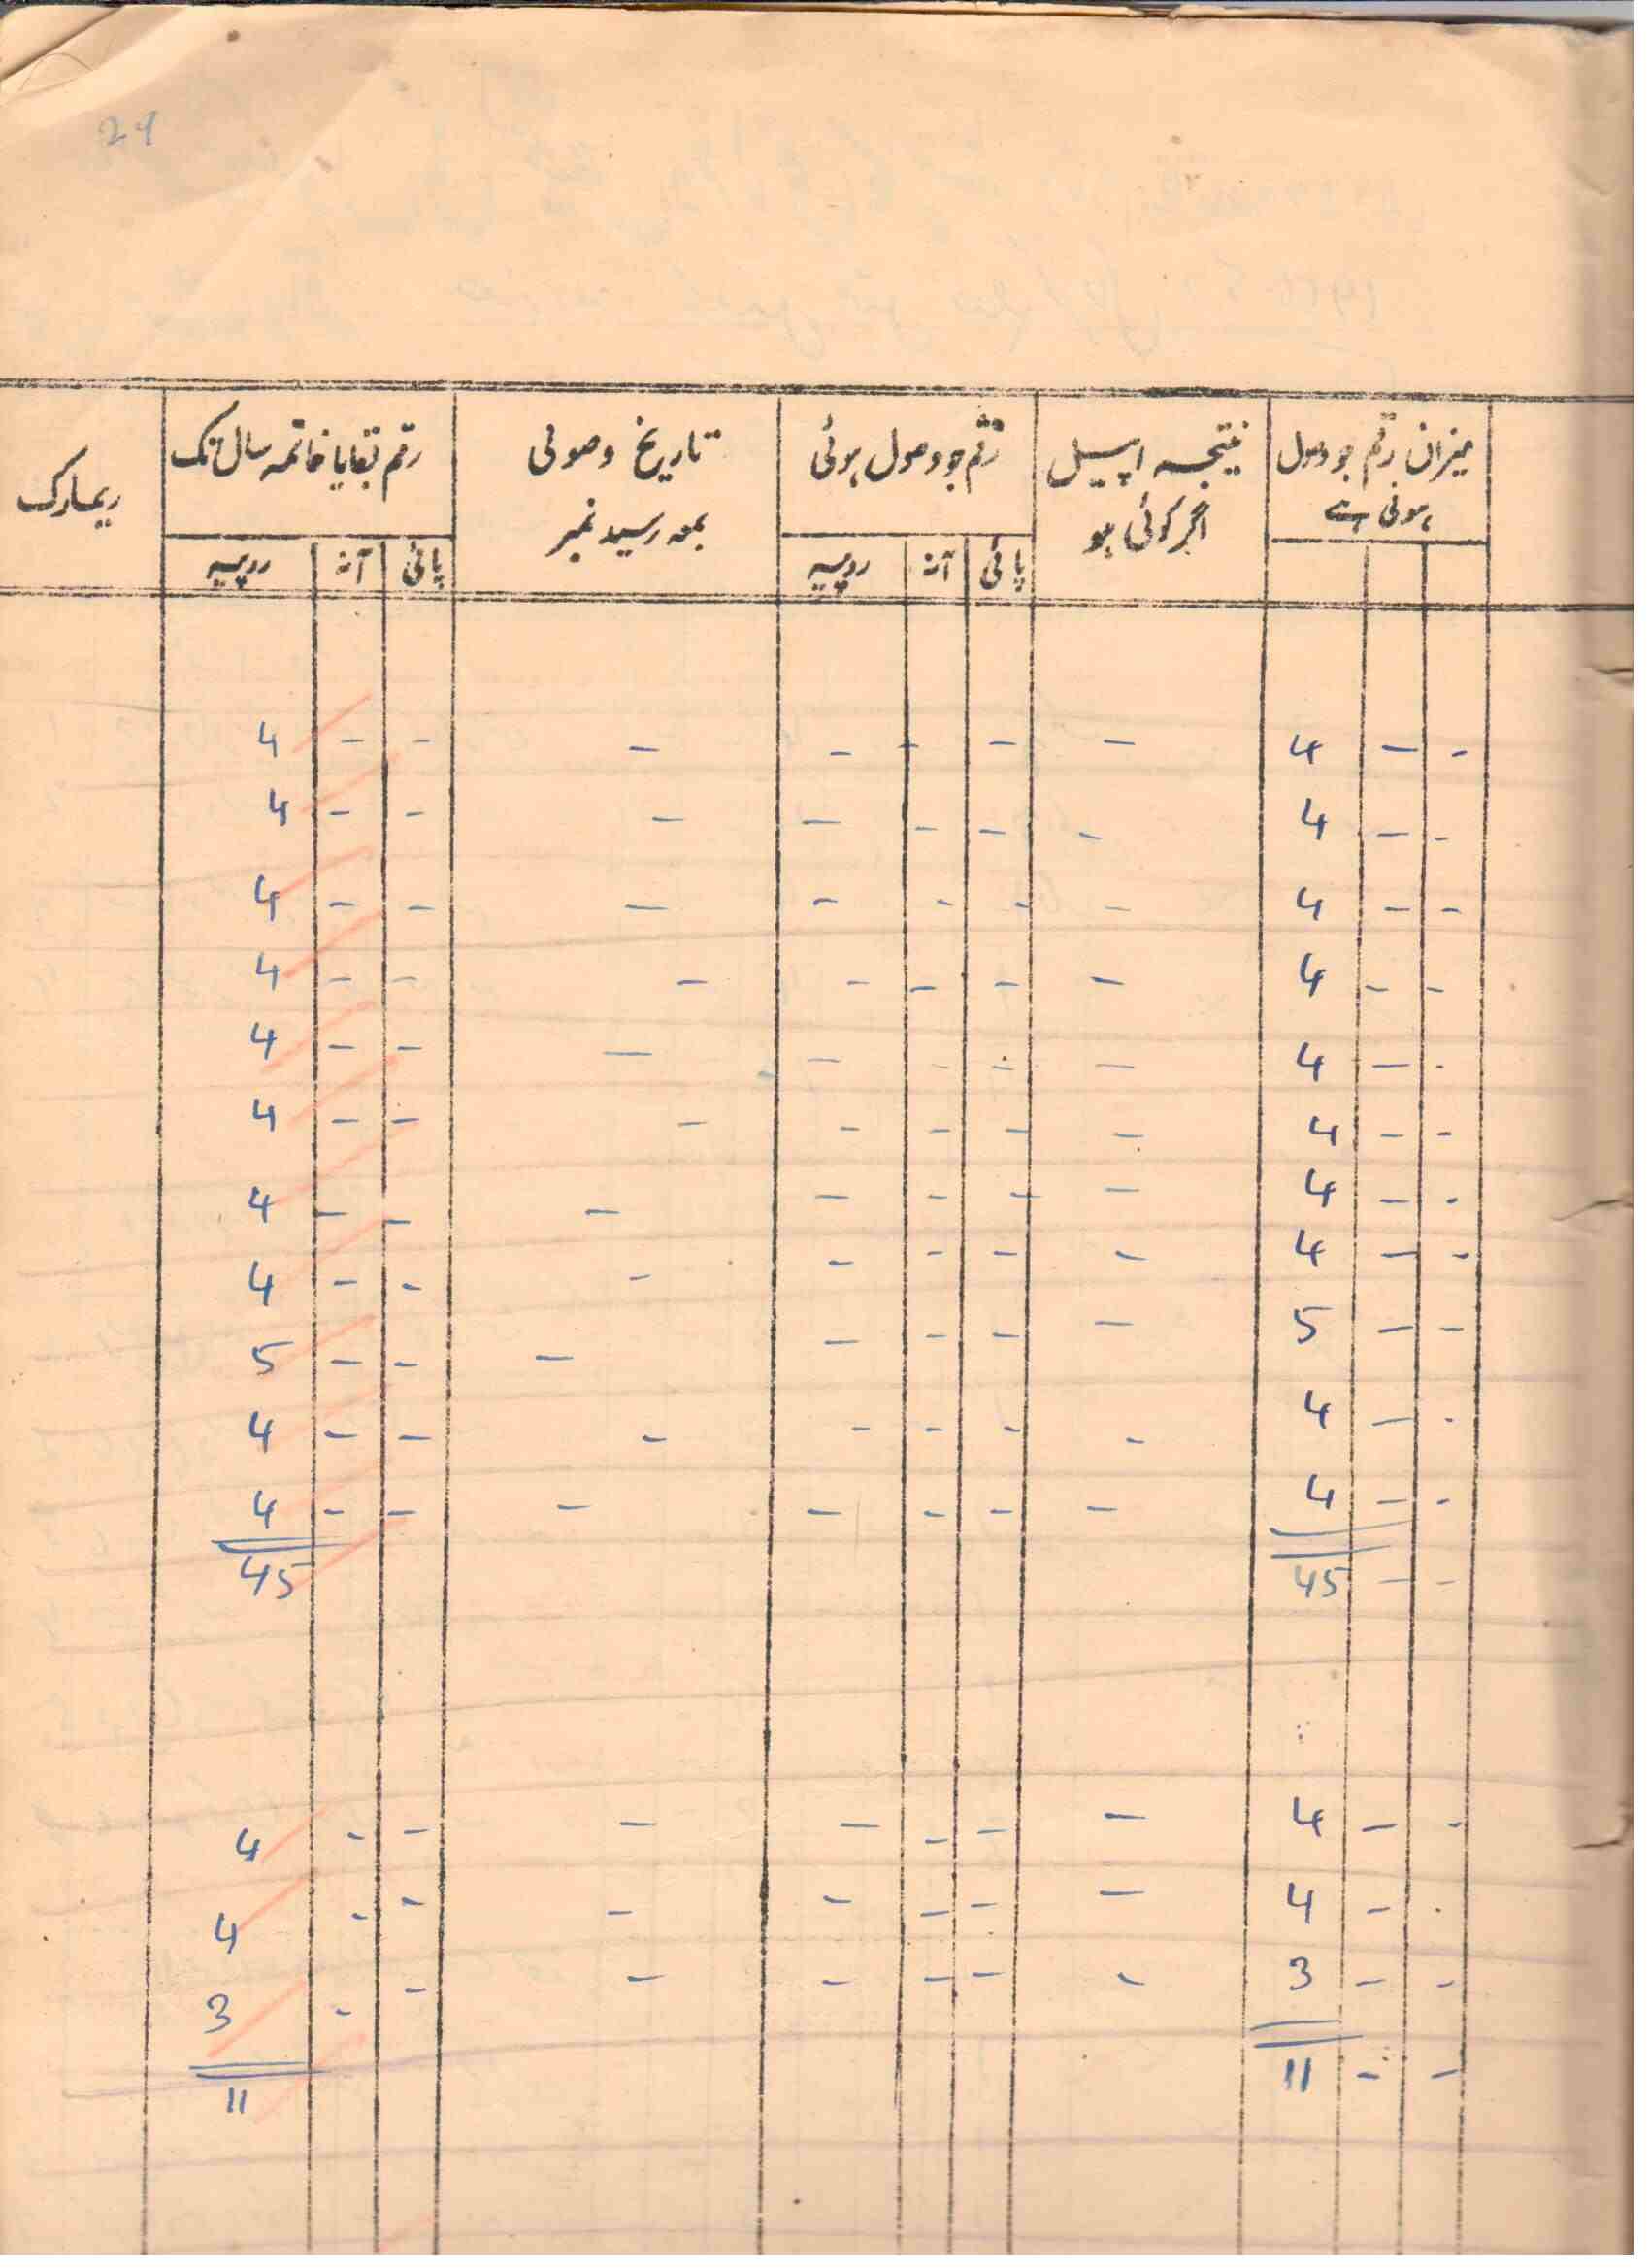 29
میزان رقم جو وصول ہونی ہے | نتیجہ اپیل اگر کوئی ہو | رقم جو وصول ہوئی | تاریخ وصولی بمعہ رسید نمبر | رقم بقایا خاتمہ سال تک | ریمارک
پائی | آنہ | روپیہ | پائی | آنہ | روپیہ
- | - | 4 | - | - | - | - | - | - | - | 4
- | - | 4 | - | - | - | - | - | - | - | 4
- | - | 4 | - | - | - | - | - | - | - | 4
- | - | 4 | - | - | - | - | - | - | - | 4
- | - | 4 | - | - | - | - | - | - | - | 4
- | - | 4 | - | - | - | - | - | - | - | 4
- | - | 4 | - | - | - | - | - | - | - | 4
- | - | 4 | - | - | - | - | - | - | - | 4
- | - | 5 | - | - | - | - | - | - | - | 5
- | - | 4 | - | - | - | - | - | - | - | 4
- | - | 4 | - | - | - | - | - | - | - | 4
- | - | 45 | 45
- | - | 4 | - | - | - | - | - | - | - | 4
- | - | 4 | - | - | - | - | - | - | - | 4
- | - | 3 | - | - | - | - | - | - | - | 3
- | - | 11 | 11